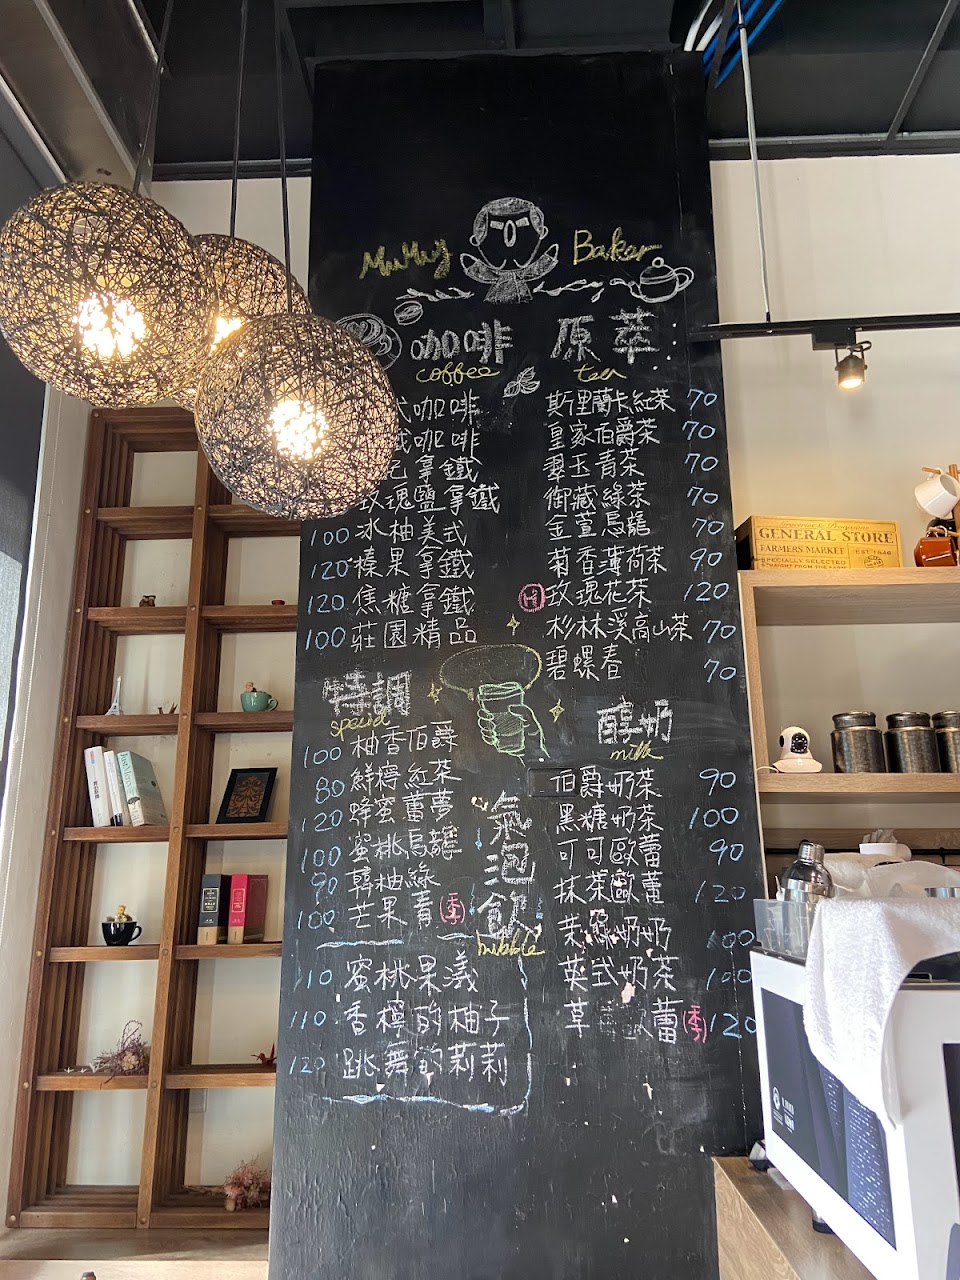 MuMuy Baker
咖啡
coffee
式咖啡
咖啡
拿鐵
玫瑰鹽拿鐵
100 冰柚美式
120 榛果拿鐵
120 焦糖拿鐵
100 莊園精品
原萃
tea
斯里蘭卡紅茶 70
皇家伯爵茶 70
翠玉青茶 70
御藏綠茶 70
金萱烏龍 70
菊香薄荷茶 90
H 玫瑰花茶 120
杉林溪高山茶 70
碧螺春 70
特調
special
100 柚香伯爵
80 鮮檸紅茶
120 蜂蜜蕾夢
100 蜜桃烏龍
90 韓柚綠
100 芒果青 (季)
氣泡飲
bubble
110 蜜桃果漾
110 香檸的柚子
120 跳舞的莉莉
醇奶
milk
伯爵奶茶 90
黑糖奶茶 100
可可歐蕾 90
抹茶歐蕾 120
茉綠奶奶 100
英式奶茶 100
草 蕾 (季) 120
GENERAL STORE
FARMERS MARKET
EST 1846
SPECIALLY SELECTED
STRAIGHT FROM THE FARM